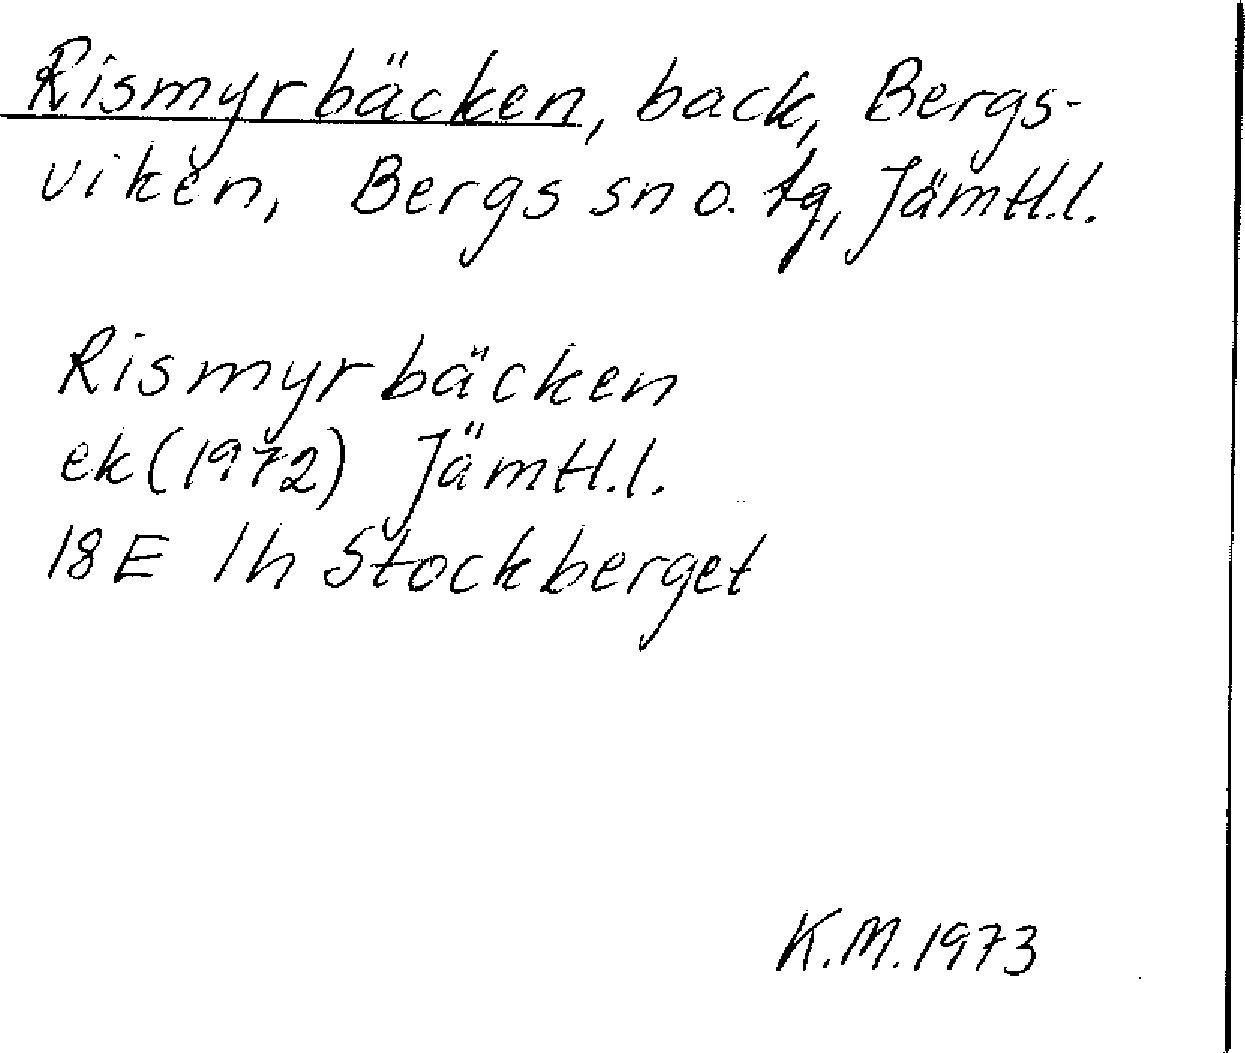 Rismyrbäcken, back, Bergs-
viken, Bergs sn o. tg, Jämtl.l.
Rismyrbäcken
ek (1972) Jämtl.l.
18E 1h Stockberget
K.M. 1973